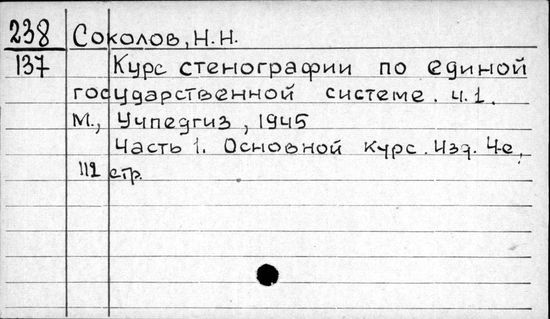 238 Соколов, Н. Н.
137 Курс стенографии по единой
государственной системе. ч. 1.
М., Учпедгиз, 1945
Часть 1. Основной курс. Изд. 4е,
112 стр.